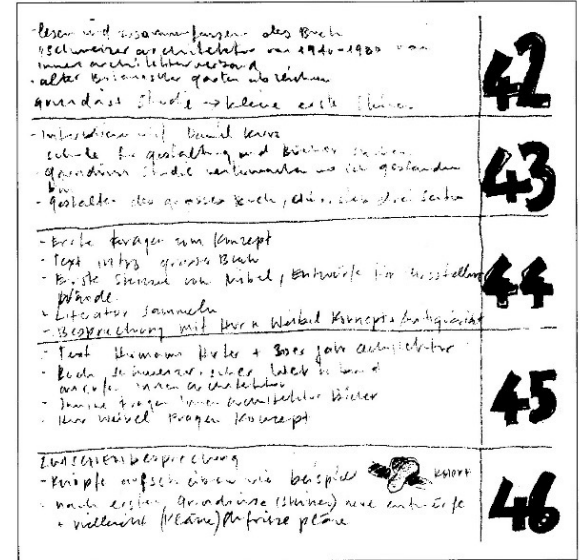 - lesen und zusammenfassen des Buch
schweizer architektur von 1940-1980 von
innenarchitekturverband
- alter Botanischer garten abzeichnen
grundriss Studie → kleine erste
42
- Interview mit Daniel Kurz
schule für gestaltung und Bücher
- grundriss Studie wo ich gestanden
bin
- gestalten des grosses Buch, das drei Seiten
43
- Erste Fragen zum Konzept
- Text intro grosses Buch
- Erste Skizze von Möbel, Entwürfe für Ausstellung
wände
- Literatur sammeln
- Besprechung mit Herr Weibel Konzept + Antiquariat
44
- Text Hermann + 30er jahr architektur
- Buch schweizerischer Werkbund
anrufen innenarchitektur
- Fragen innenarchitektur Bilder
- Herr Weibel Fragen Konzept
45
ZWISCHENbesprechung
- Knöpfe aufschreiben wie beispiel KNOPF
- nach ersten Grundrisse (Skizze) neue entwürfe
+ vielleicht (Pläne) pläne
46